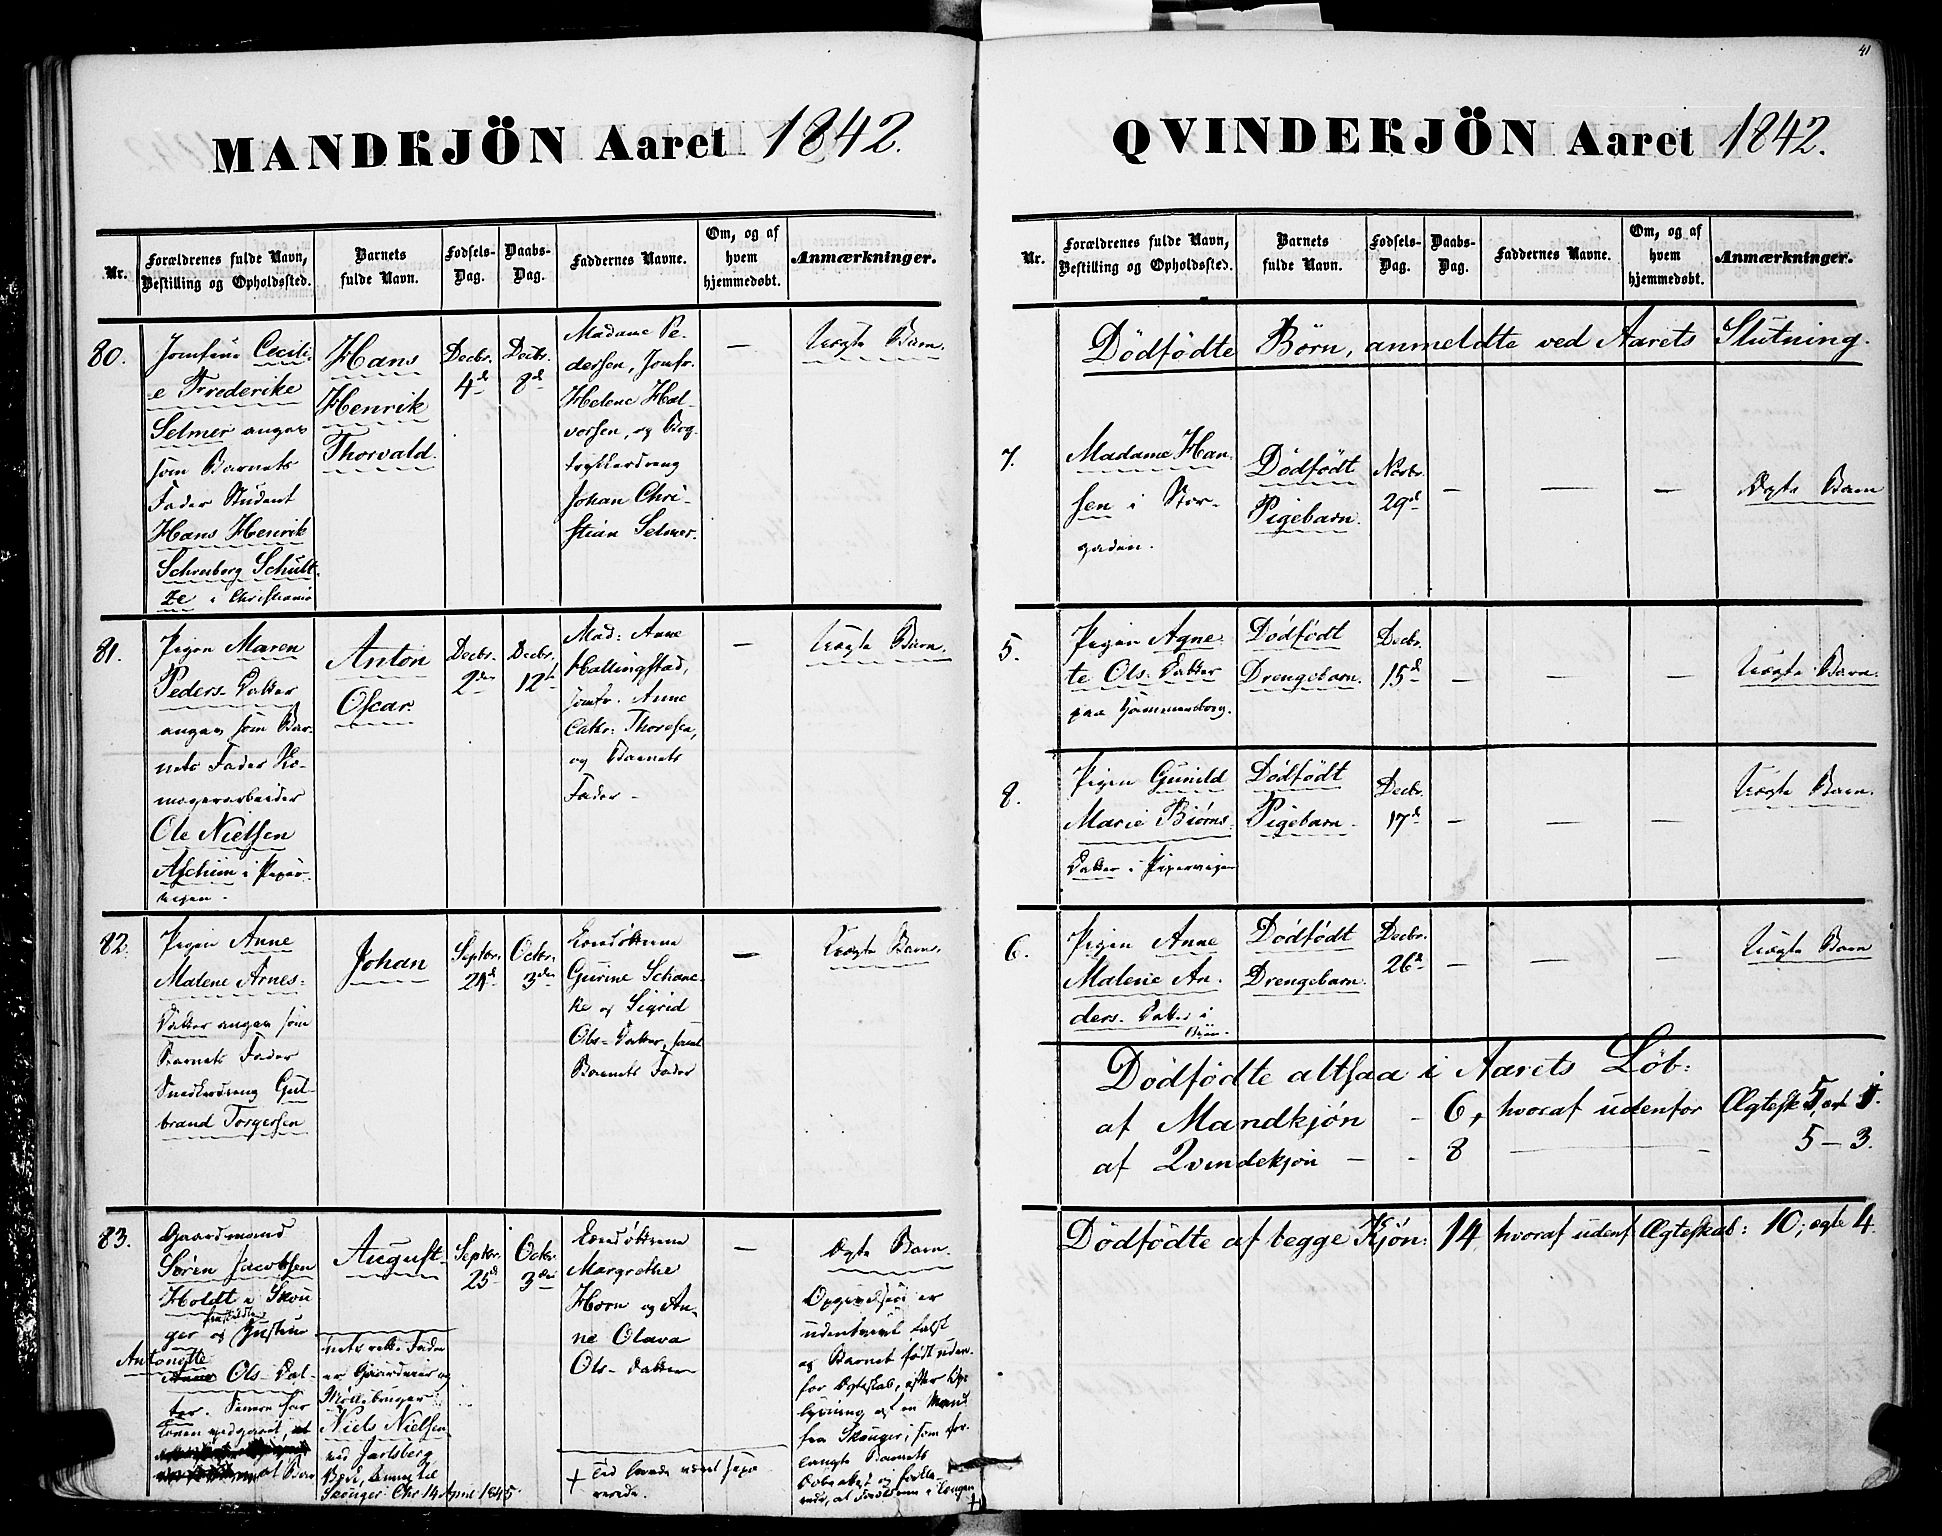 41
MANDKJÖN Aaret 1842.
Nr.
Forældrenes fulde Navn,
Bestilling og Opholdssted.
Barnets
fulde Navn.
Fødsels-
Dag.
Daabs-
Dag.
Faddernes Navne.
Om, og af
hvem
hjemmedøbt.
Anmærkninger.
80.
Jomfrue Cecili-
e Frederikke
Selmer angav
som Barnets
Fader Student
Hans Henrik
Schultz-
ze i Christiania
Hans
Henrik
Thorvald.
Decbr.
4de
Decbr.
8de
Madame Pe-
dersen, Jomfr.
Helene Hal-
vorsen, og Bog-
trykkerdreng
Johan Chri-
stian Selmer.
—
Uægte Barn.
81.
Pigen Maren
Peders-Datter
angav som Bar-
nets Fader
arbeider
Ole Nielsen
Aschim i Piper-
vigen.
Anton
Oscar.
Decbr.
2den
Decbr.
12te
Mad: Anne
Hallingstad,
Jomfr. Anne
Cathr: Thoresen,
og Barnets
Fader.
—
Uægte Barn.
82.
Pigen Anne
Malene Arnes-
Datter angav som
Barnets Fader
Snedkerdreng Gul-
brand Torgersen
Johan
Septbr.
24de
Octbr.
3den
Gurine Schanc-
ke og Sigrid
Ols-Datter, samt
Barnets Fader
—
Uægte Barn.
83.
Gaardmand
Søren Jacobsen
Holdt i Skou
ger og Hustru
Antonette
Ols-Dat-
ter.
August
Septbr.
25de
Octbr.
3die
nets Fader
er Gaardeier og
Møllebruger
Niels Nielsen
ved Jarlsberg
Skouger. Chr 14 April 1845
Margrethe
Horn og An-
ne Olava
Ols-Datter
—
Ægte Barn.
Opgivelsen er
falsk
og Barnet født uden-
for Ægteskab, efter Op-
lysning af en Mand
fra Skouger, som for-
langte Barnets
QVINDEKJÖN Aaret 1842.
Nr.
Forældrenes fulde Navn,
Bestilling og Opholdssted.
Barnets
fulde Navn.
Fødsels-
Dag.
Daabs-
Dag.
Faddernes Navne.
Om, og af
hvem
hjemmedøbt.
Anmærkninger.
Dödfödte Børn, anmeldte ved Aarets Slutning.
7.
Madame Han-
sen i Stor-
gaden.
Dödfödt
Pigebarn.
Novbr.
29de
— — —
Ægte Barn
5.
Pigen Agne-
te Ols-Datter
paa Hammersborg.
Dödfödt
Drengebarn.
Decbr.
15de
— — —
Uægte Barn.
8.
Pigen Gunild
Marie Biørns-
Datter i Pipervigen
Dödfödt
Pigebarn.
Decbr.
17de
— — —
Uægte Barn.
6.
Pigen Anne
Malene An-
ders-Datter i
Byen.
Dödfödt
Drengebarn.
Decbr.
26de
— — —
Uægte Barn
Dödfödte altsaa i Aarets Löb:
af Mandkjön - 6, hvoraf udenfor Ægtesk. 5, ægte 1.
af Qvindekjön - - 8 — 5 - 3.
Dödfödte af begge Kjön: 14, hvoraf udenf. Ægteskab: 10; ægte 4.